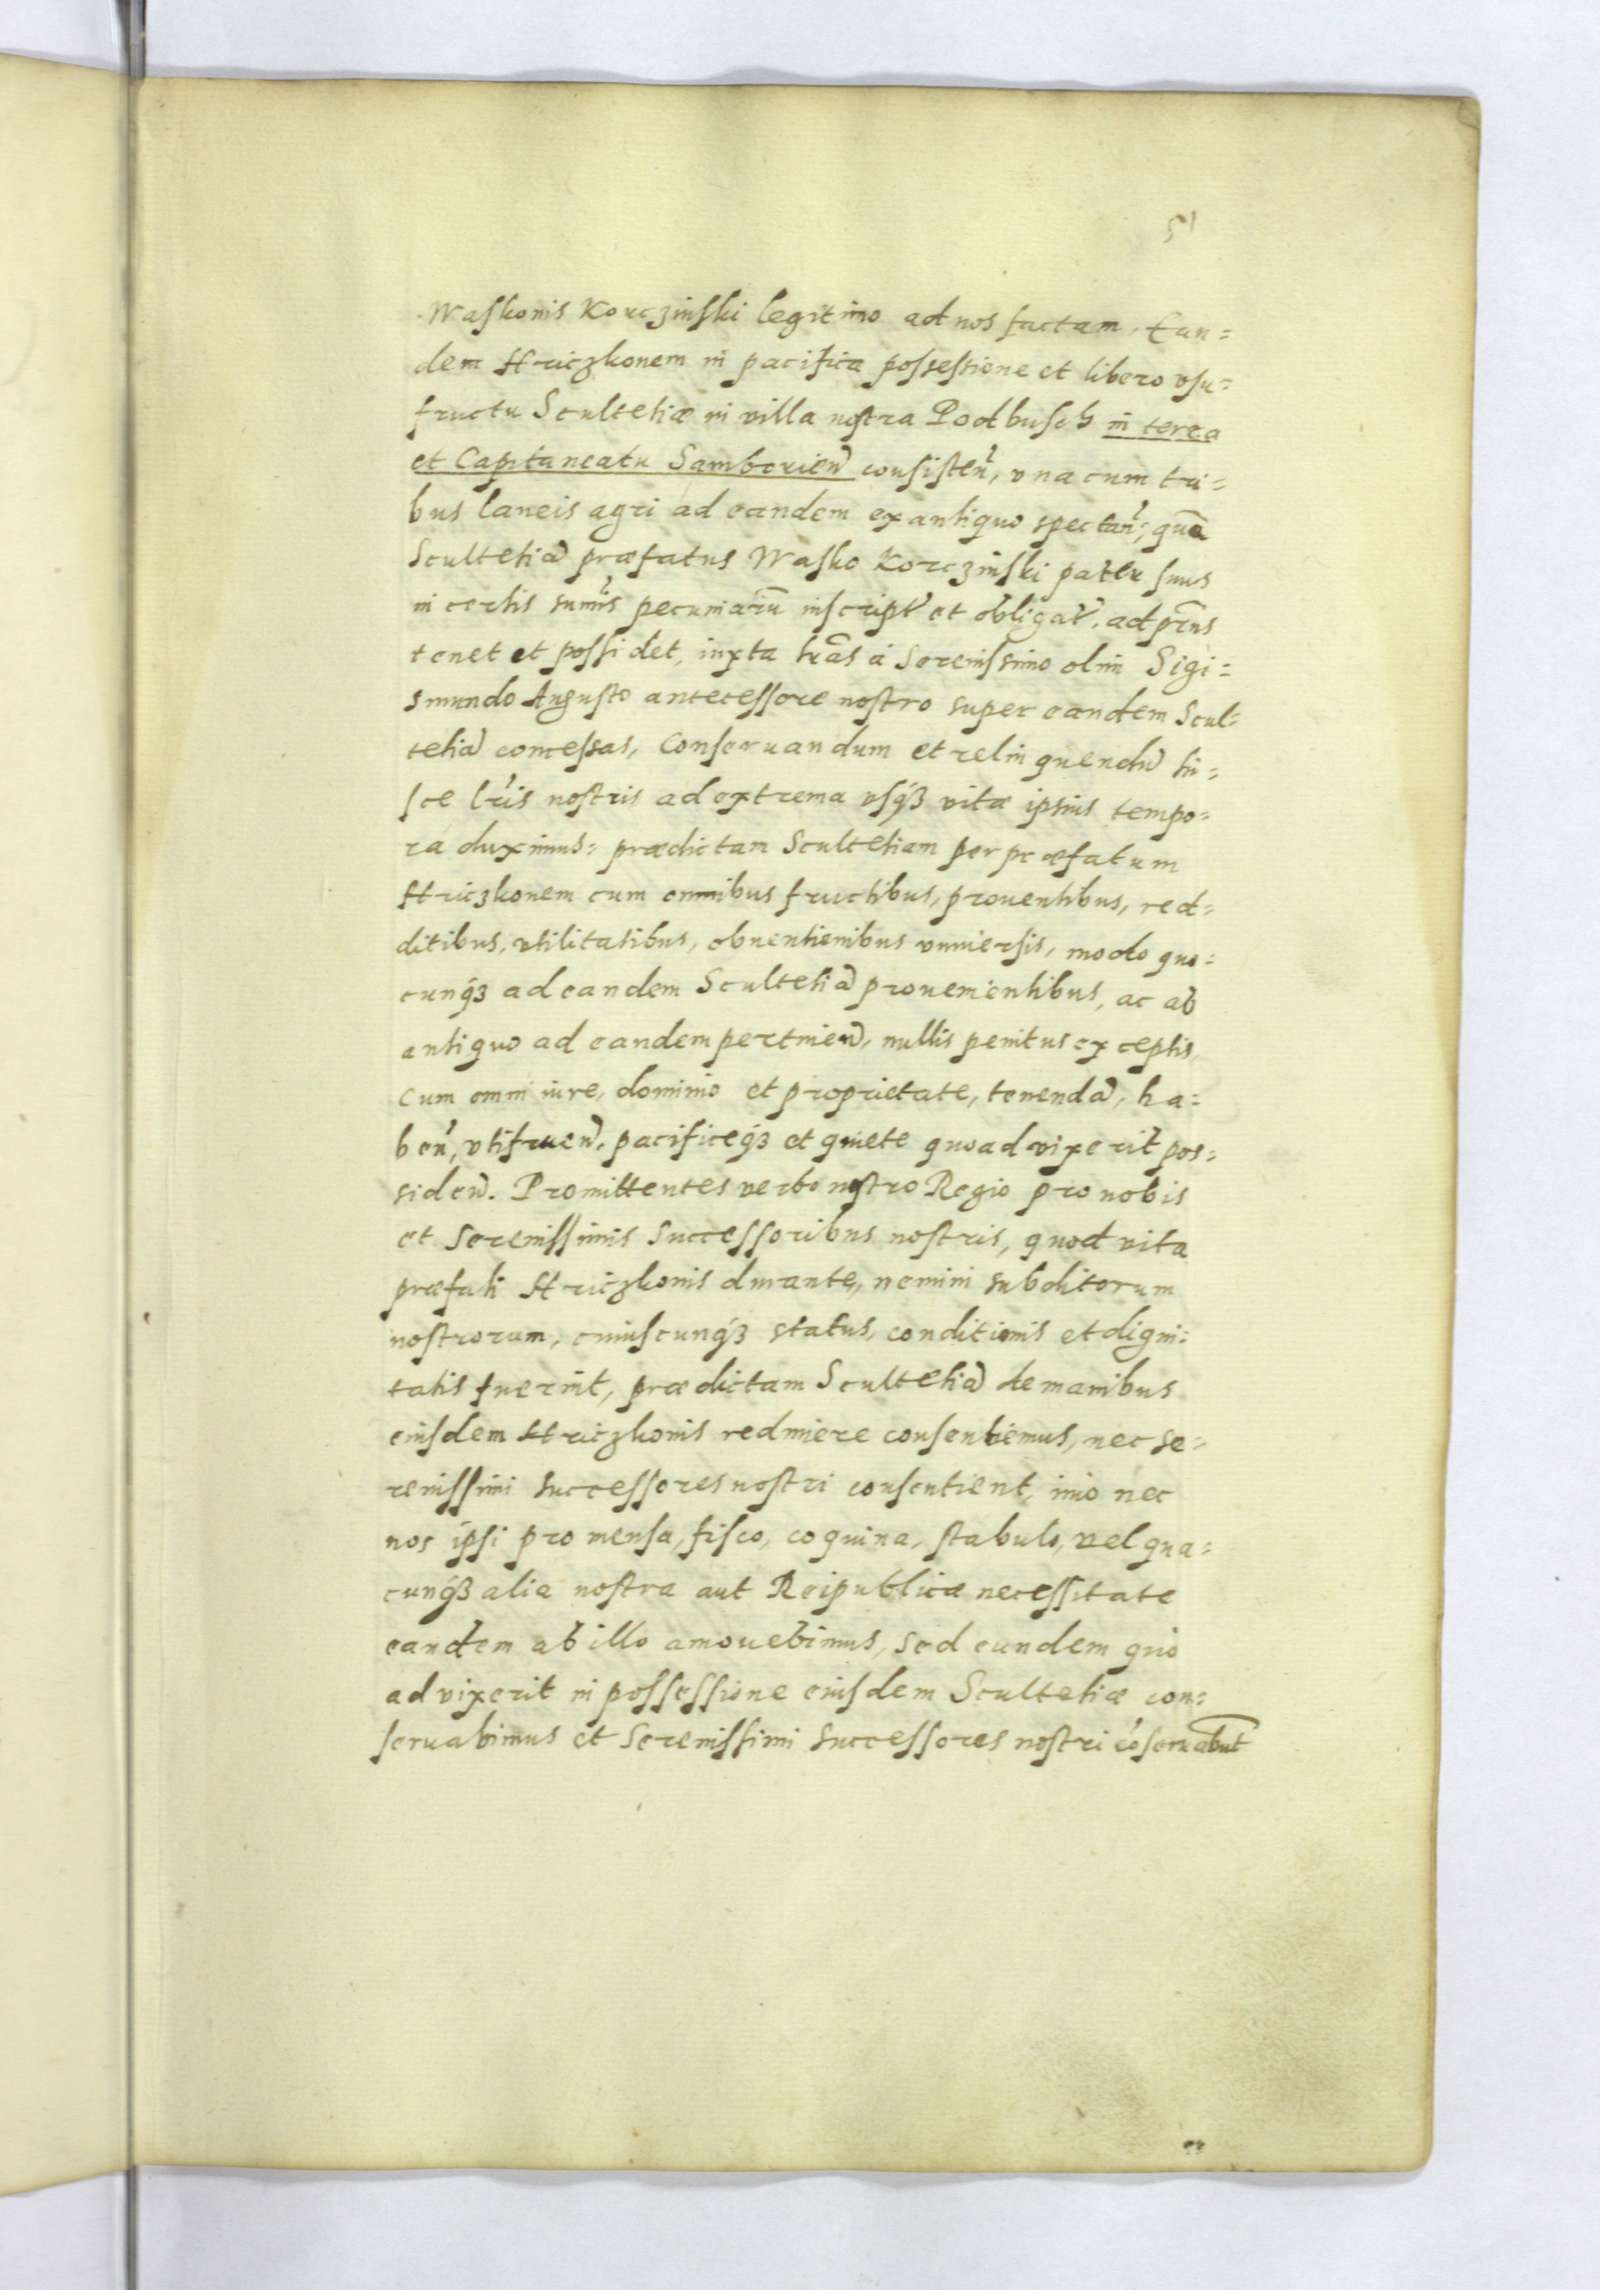 51
Waskonis Korczinski legitimo ad nos factam, Eun=
dem Hriczkonem in pacifica possessione et libero vsu=
fructu Scultetiæ in villa nostra Podbusch in terra
et Capitaneatu Samborien̄ consisten̄, vna cum tri=
bus laneis agri ad eandem ex antiquo spectan̄; quā
Scultetiā præfatus Wasko Korczinski pater suus
in certis sum̄is pecuniarū inscript̄ et obligat̄, ad pn̄s
tenet et possidet, iuxta lr̄as à Serenissimo olim Sigi=
smundo Augusto antecessore nostro super eandem Scul=
tetiā concessas, Conseruandum et relinquendū hi=
sce lr̄is nostris ad extrema vsq́ꝫ vitæ ipsius tempo=
ra duximus: prædictam Scultetiam per præfatum
Hriczkonem cum omnibus fructibus, prouentibus, red=
ditibus, vtilitatibus, obuentionibus vniuersis, modo quo=
cunq́ꝫ ad eandem Scultetiā prouenientibus, ac ab
antiquo ad eandem pertinen̄, nullis penitus exceptis,
cum omni iure, dominio et proprietate, tenendā, ha=
ben̄, vtifruen̄, pacificeq́ꝫ et quiete quoad vixerit pos=
siden̄. Promittentes verbo nostro Regio pro nobis
et Serenissimis Successoribus nostris, quod vita
præfati Hriczkonis durante, nemini subditorum
nostrorum, cuiuscunq́ꝫ status, conditionis et digni=
tatis fuerint, prædictam Scultetiā de manibus
eiusdem Hriczkonis redimere consentiemus, nec Se=
renissimi Successores nostri consentient, imo nec
nos ipsi pro mensa, fisco, coquina, stabulo, vel qua=
cunq́ꝫ alia nostra aut Reipublicæ necessitate
eandem ab illo amouebimus, sed eundem quo
ad vixerit in possessione eiusdem Scultetiæ con=
seruabimus et Serenissimi Successores nostri cōseruabūt